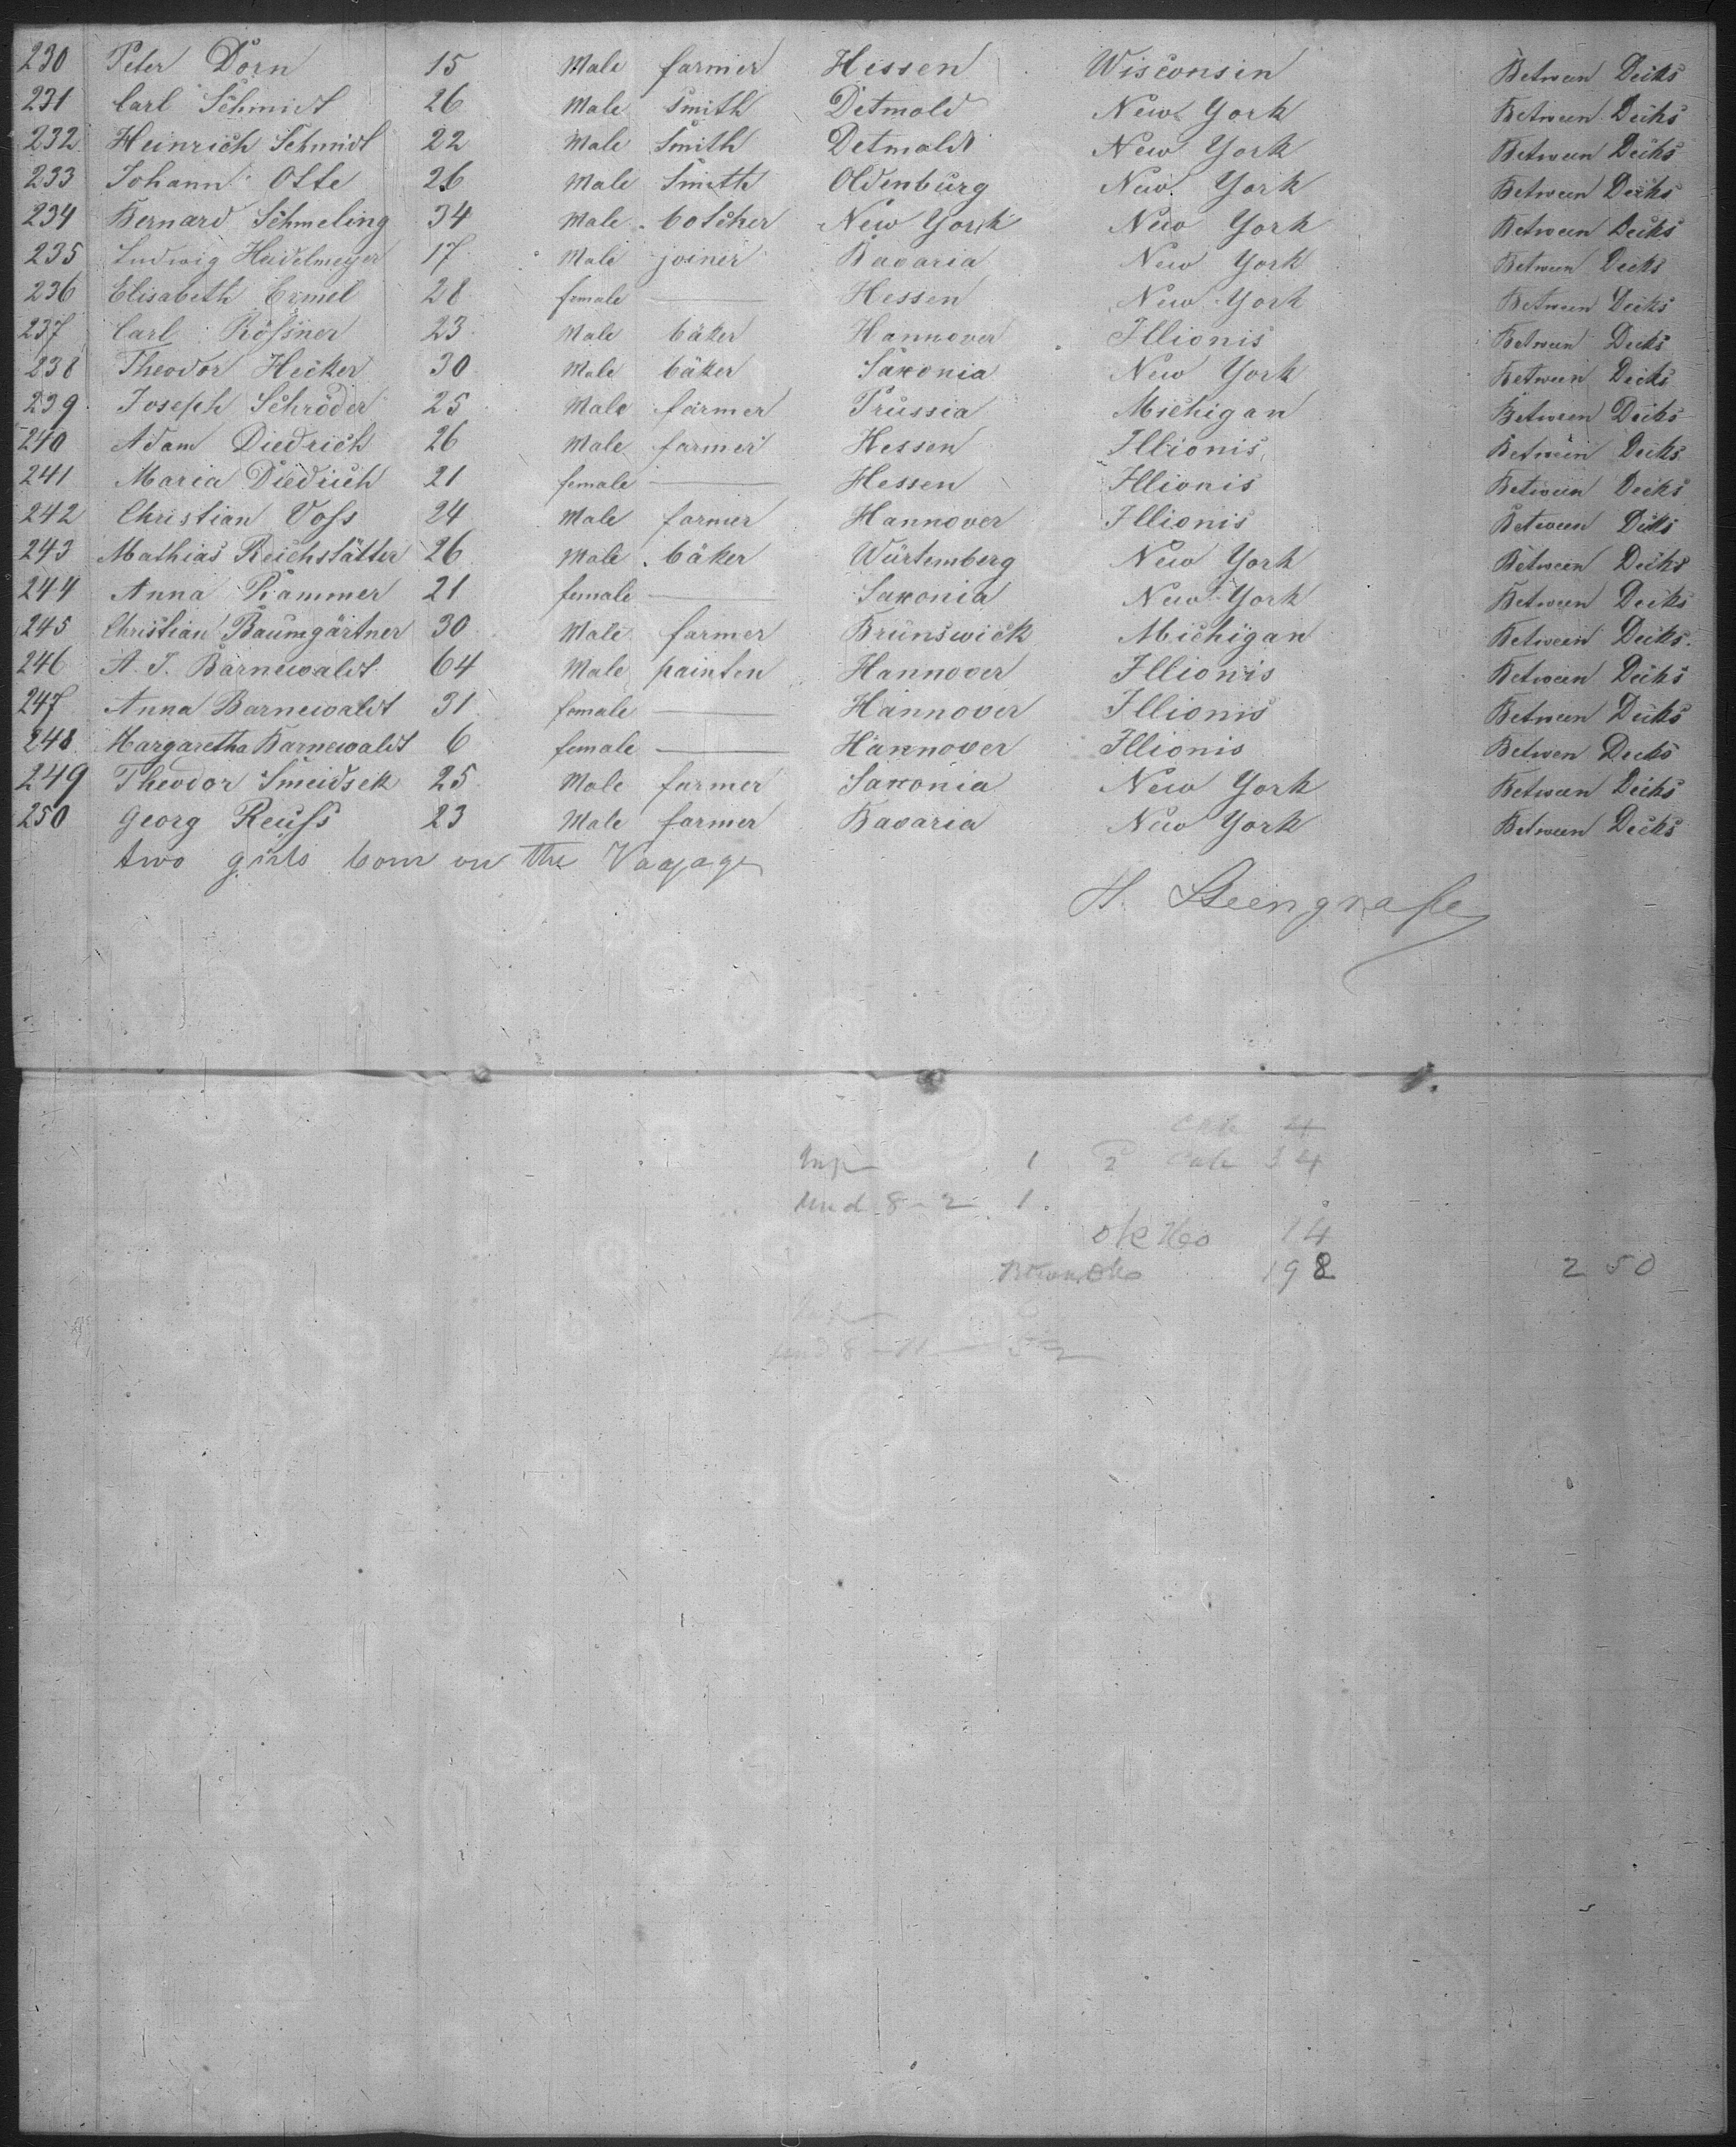 230 Peter Dorn 15 Male farmer Hessen Wisconsin Between Decks
231 Carl Schmidt 26 Male Smith Detmold New York Between Decks
232 Heinrich Schmidt 22 Male Smith Detmold New York Between Decks
233 Johann Otte 26 Male Smith Oldenburg New York Between Decks
234 Bernard Schmeling 34 Male botcher New York New York Between Decks
235 Ludwig Heidelmeyer 17 Male joiner Bavaria New York Between Decks
236 Elisabeth Ermel 28 female Hessen New York Between Decks
237 Carl Rößner 23 Male bäker Hannover Illionis Between Decks
238 Theodor Hecker 30 Male bäker Saxonia New York Between Decks
239 Joseph Schröder 25 Male farmer Prussia Michigan Between Decks
240 Adam Diedrich 26 Male farmer Hessen Illionis Between Decks
241 Maria Diedrich 21 female Hessen Illionis Between Decks
242 Christian Voss 24 Male farmer Hannover Illionis Between Decks
243 Mathias Reichstätter 26 Male bäker Würtemberg New York Between Decks
244 Anna Rammer 21 female Saxonia New York Between Decks
245 Christian Baumgärtner 30 Male farmer Brunswick Michigan Between Decks
246 A. J. Barnewaldt 64 Male painten Hannover Illionis Between Decks
247 Anna Barnewaldt 31 female Hannover Illionis Between Decks
248 Margaretha Barnewaldt 6 female Hannover Illionis Betwen Decks
249 Theodor Smeidsek 25 Male farmer Saxonia New York Between Decks
250 Georg Reuss 23 Male farmer Bavaria New York Between Decks
two girls born on the Vagage
H.
4
1 2 34
Und 8-2 1
14
198 250